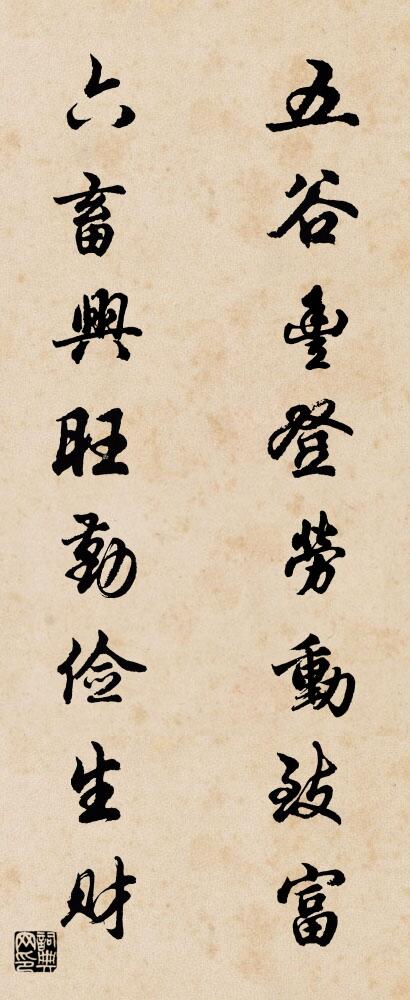 五谷豐登勞動致富
六畜興旺勤俭生财
詞典网印